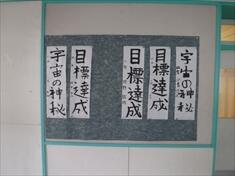 宇宙の神秘
目標達成
目標達成
目標達成
宇宙の神秘